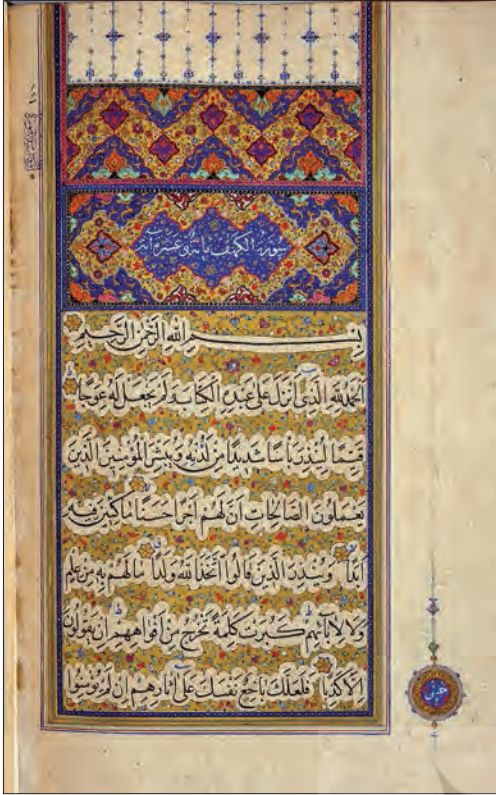 سورة الكهف مائة وعشر آية
بسم الله الرحمن الرحيم
الحمد لله الذي أنزل على عبده الكتاب ولم يجعل له عوجا
قيما لينذر بأسا شديدا من لدنه ويبشر المؤمنين الذين
يعملون الصالحات أن لهم أجرا حسنا ماكثين فيه
أبدا وينذر الذين قالوا اتخذ الله ولدا ما لهم به من علم
ولا لآبائهم كبرت كلمة تخرج من أفواههم إن يقولون
إلا كذبا فلعلك باخع نفسك على آثارهم إن لم يؤمنوا